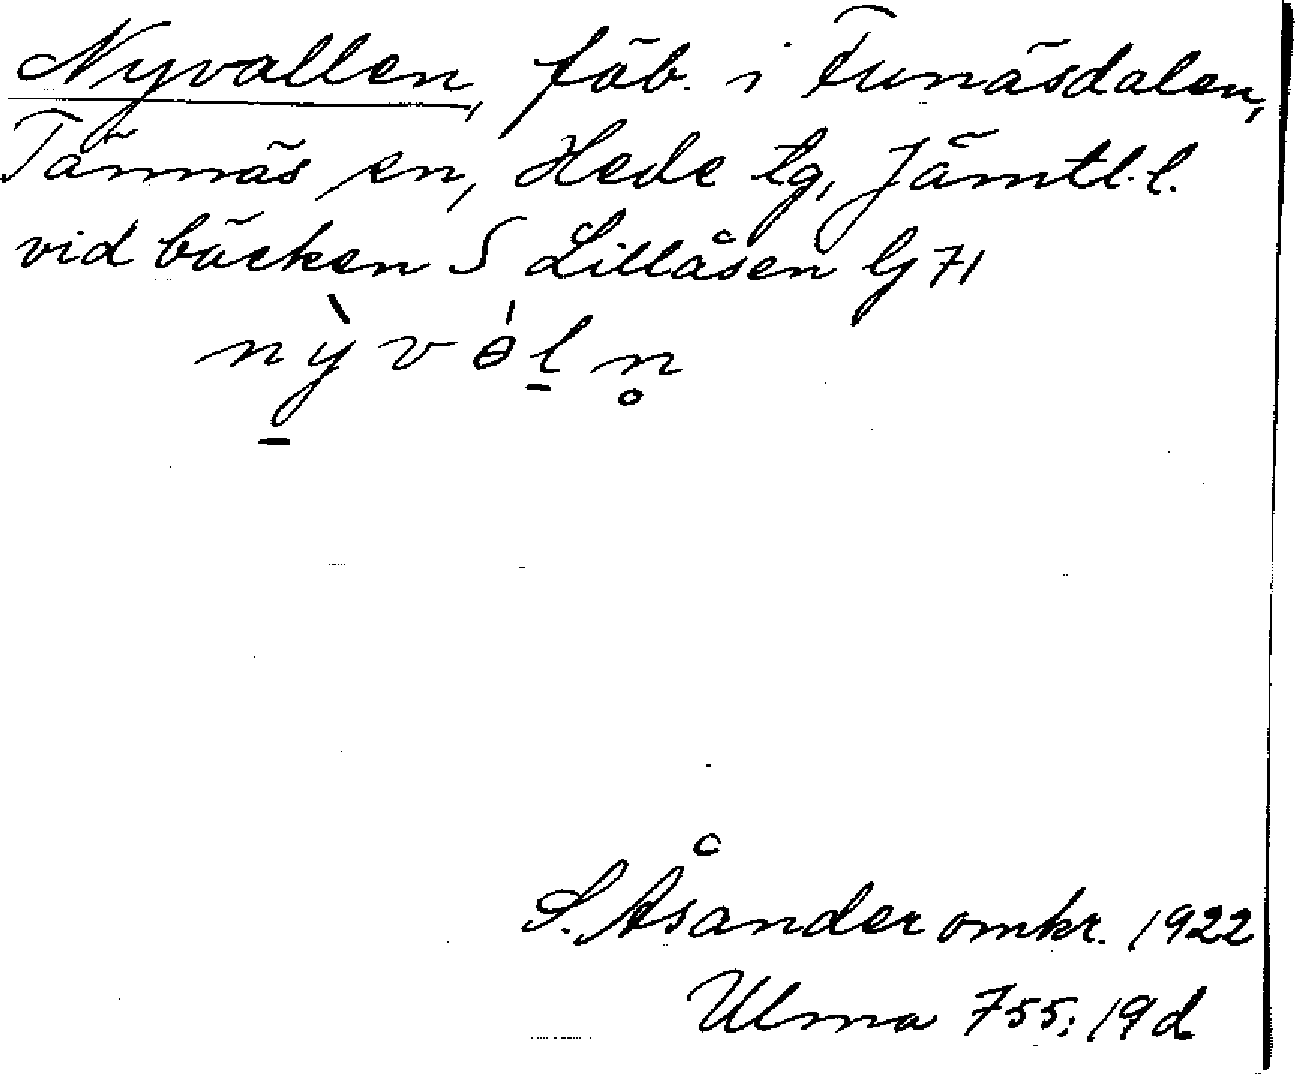 Nyvallen, fäb. i Funäsdalen,
Tännäs sn, Hede tg, Jämtl. l.
vid bäcken S Lillåsen Gj 71
nỳ̠vɵ́l̠n̥
S. Åsander omkr. 1922
Ulma 755:19d